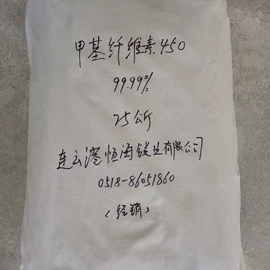 甲基纤维素450
99.99%
25公斤
连云港恒海钛业有限公司
0518-86051860
(经销)